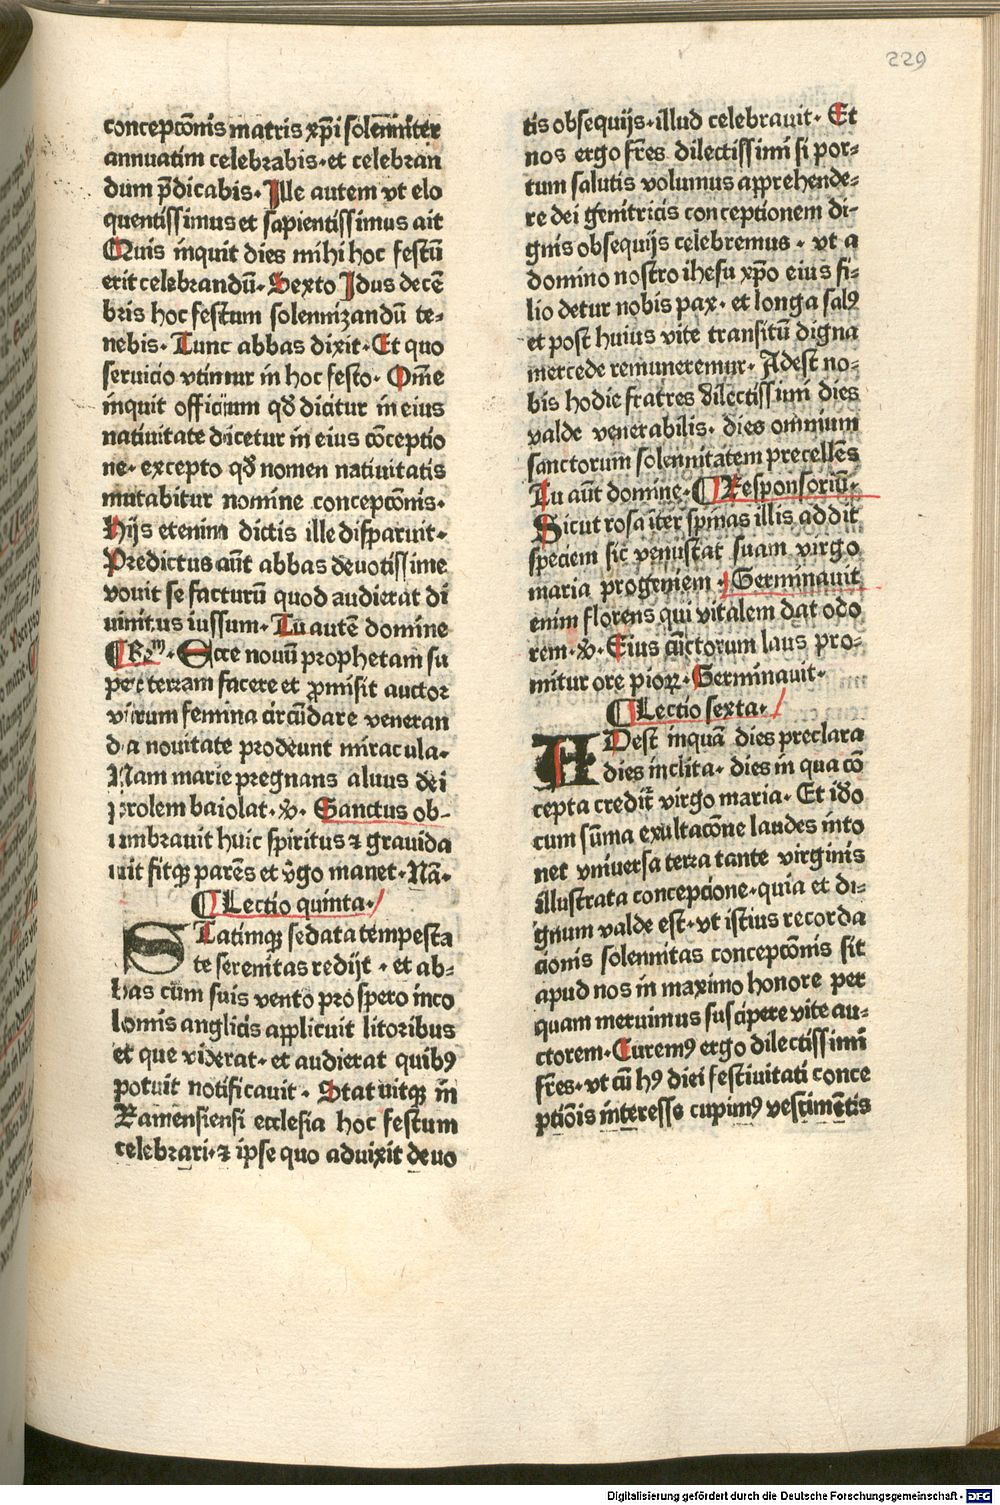 229
concepcōnis matris xp̄i solēniiter
annuatim celebrabis·et celebran
dum p̄dicabis·Ille autem vt elo
quentissimus et sapientissimus ait
Quis inquit dies mihi hoc festū
erit celebrandū·Sexto Idus decē
bris hoc festum solennizandū te⸗
nebis·Tunc abbas dixit·Et quo
seruicio vtimur in hoc festo·Om̄e
inquit officium qd̄ dicitur in eius
natiuitate dicetur in eius cōceptio
ne·excepto qd̄ nomen natiuitatis
mutabitur nomine concepcōnis·
Hijs etenim dictis ille disparuit·
Predictus aūt abbas deuotissime
vouit se facturū quod audierat di
uinitus iussum·Tu autē domine
¶R̄m·Ecce nouū prophetam su
per terram facere et ꝓmisit auctor
virum femina circūdare veneran
da nouitate prodeunt miracula·
Nam marie pregnans aluus dei
prolem baiolat·v̄·Sanctus ob⸗
umbrauit huic spiritus ⁊ grauida
uit fitqꝫ parēs et v̄go manet·Nā·
¶Lectio quinta·
STatimqꝫ sedata tempesta
te serenitas redijt·et ab⸗
bas cūm suis vento prospero inco
lomis anglicis applicuit litoribus
et que viderat·et audierat quibꝰ
potuit notificauit·Statuitqꝫ in̄
Ramensiensi ecclesia hoc festum
celebrari·⁊ ipse quo aduixit deuo
tis obsequijs·illud celebrauit·Et
nos ergo fr̄es dilectissimi si por⸗
tum salutis volumus apprehende⸗
re dei genitricis conceptionem di⸗
gnis obsequijs celebremus·vt a
domino nostro ihesu xp̄o eius fi⸗
lio detur nobis pax·et longa salꝰ
et post huius vite transitū digna
mercede remuneremur·Adest no⸗
bis hodie fratres dilectissimi dies
valde venerabilis·dies omnium
sanctorum solennitatem precellēs
Tu aūt domine·¶Responsoriū·
Sicut rosa īter spinas illis addit
speciem sic venustat suam virgo
maria progeniem·Germinauit
enim florens qui vitalem dat odo
rem·v̄·Eius cūctorum laus pro⸗
mitur ore pioꝝ·Germinauit·
¶Lectio sexta·
ADest inquā dies preclara
dies inclita·dies in qua cō
cepta credit̄ virgo maria·Et id̄o
cum sūma exultacōne laudes into
net vniuersa terra tante virginis
illustrata concepcione·quia et di⸗
gnum valde est·vt istius recorda
cionis solennitas concepcōnis sit
apud nos in maximo honore per
quam meruimus suscipere vite au⸗
ctorem·Curemꝰ ergo dilectissimi
fr̄es·vt cū hꝰ diei festiuitati conce
ptiōis interesse cupimꝰ vestimētis
Digitalisierung gefördert durch die Deutsche Forschungsgemeinschaft - DFG